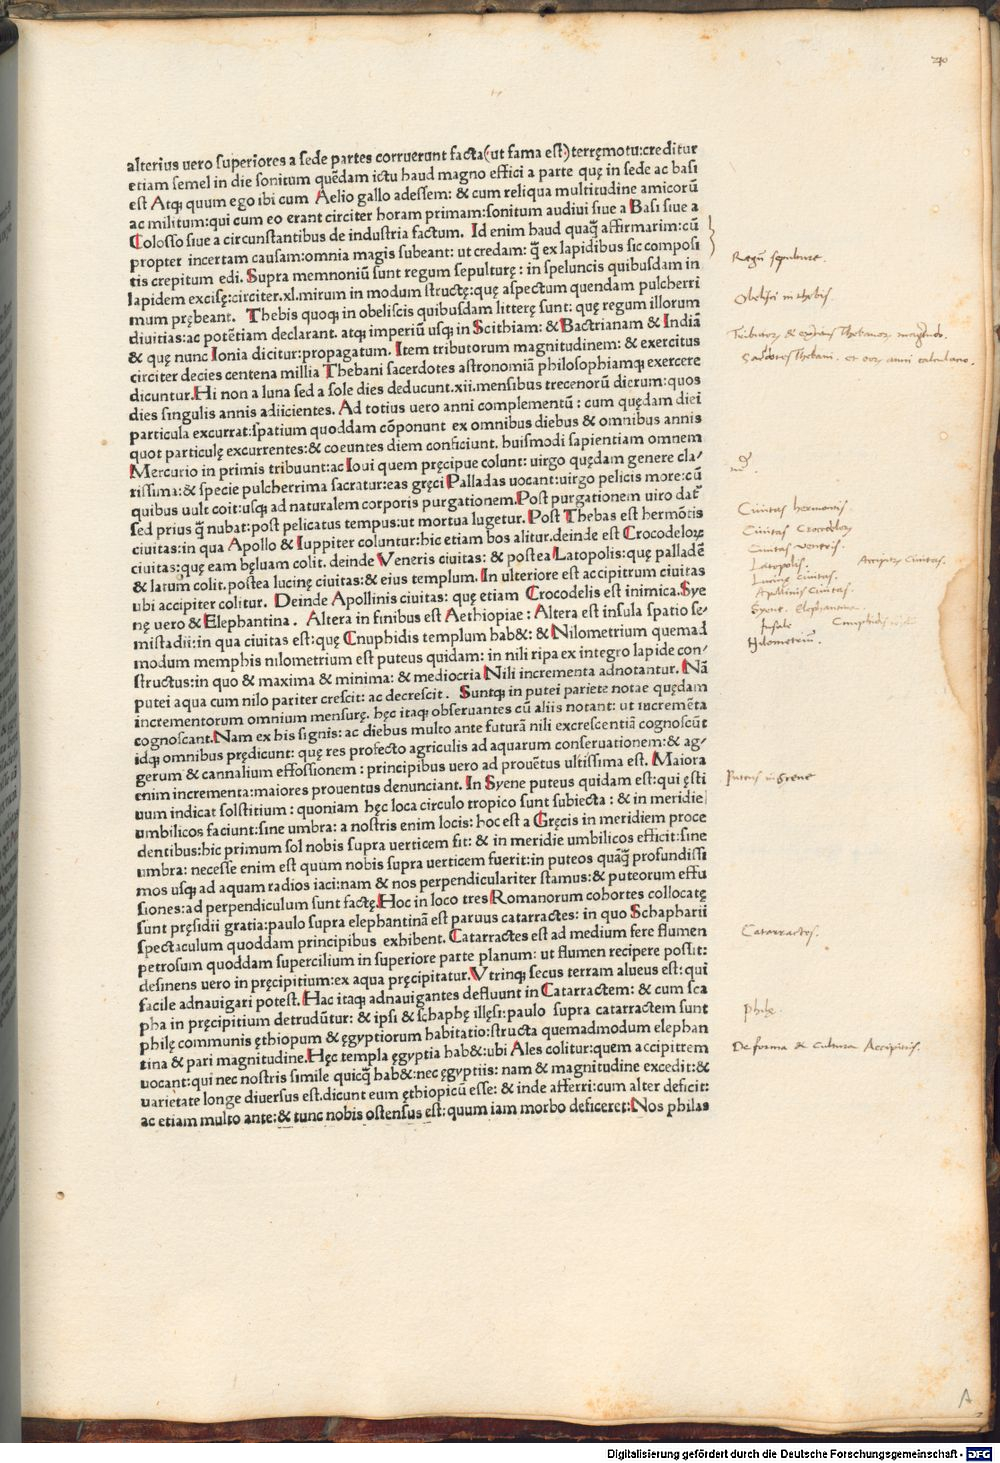 alterius uero superiores a sede partes corruerunt facta(ut fama est)terręmotu:creditur
etiam semel in die sonitum quēdam ictu haud magno effici a parte quę in sede ac basi
est Atqꝫ quum ego ibi cum Aelio gallo adessem: & cum reliqua multitudine amicorū
ac militum:qui cum eo erant circiter horam primam:sonitum audiui siue a Basi siue a
Colosso siue a circunstantibus de industria factum. Id enim haud quaq̄ affirmarim:cū
propter incertam causam:omnia magis subeant: ut credam: q̄ ex lapidibus sic composi
tis crepitum edi. Supra memnoniū sunt regum sepulturę: in speluncis quibusdam in
lapidem excisę:circiter.xl.mirum in modum structę:quę aspectum quendam pulcherri
mum prębeant. Thebis quoqꝫ in obeliscis quibusdam litterę sunt: quę regum illorum
diuitias:ac potētiam declarant. atqꝫ imperiū usqꝫ in Scithiam: & Bactrianam & Indiā
& quę nunc Ionia dicitur:propagatum. Item tributorum magnitudinem: & exercitus
circiter decies centena millia Thebani sacerdotes astronomiā philosophiamqꝫ exercere
dicuntur.Hi non a luna sed a sole dies deducunt.xii.mensibus trecenorū dierum:quos
dies singulis annis adiicientes. Ad totius uero anni complementū: cum quędam diei
particula excurrat:spatium quoddam cōponunt ex omnibus diebus & omnibus annis
quot particulę excurrentes:& coeuntes diem conficiunt. huismodi sapientiam omnem
Mercurio in primis tribuunt:ac Ioui quem pręcipue colunt: uirgo quędam genere cla/
rissima:& specie pulcherrima sacratur:eas gręci Palladas uocant:uirgo pelicis more:cū
quibus uult coit:usqꝫ ad naturalem corporis purgationem.Post purgationem uiro dat̄
sed prius q̄ nubat:post pelicatus tempus:ut mortua lugetur. Post Thebas est hermōtis
ciuitas:in qua Apollo & Iuppiter coluntur:hic etiam bos alitur.deinde est Crocodeloꝝ
ciuitas:quę eam bęluam colit. deinde Veneris ciuitas: & postea Latopolis:quę palladē
& latum colit. postea lucinę ciuitas:& eius templum. In ulteriore est accipitrum ciuitas
ubi accipiter colitur. Deinde Apollinis ciuitas: quę etiam Crocodelis est inimica.Sye
nę uero & Elephantina. Altera in finibus est Aethiopiae: Altera est insula spatio se/
mistadii:in qua ciuitas est:quę Cnuphidis templum hab&: & Nilometrium quemad
modum memphis nilometrium est puteus quidam: in nili ripa ex integro lapide con/
structus:in quo & maxima & minima: & mediocria Nili incrementa adnotantur. Nā
putei aqua cum nilo pariter crescit: ac decrescit. Suntqꝫ in putei pariete notae quędam
incrementorum omnium mensurę. hęc itaqꝫ obseruantes cū aliis notant: ut incremēta
cognoscant.Nam ex his signis: ac diebus multo ante futurā nili excrescentiā cognoscūt
idqꝫ omnibus prędicunt: quę res profecto agriculis ad aquarum conseruationem:& ag/
gerum & cannalium effossionem: principibus uero ad prouētus ultissima est. Maiora
enim incrementa:maiores prouentus denunciant. In Syene puteus quidam est:qui ęsti
uum indicat solstitium: quoniam hęc loca circulo tropico sunt subiecta: & in meridie
umbilicos faciunt:sine umbra: a nostris enim locis: hoc est a Gręcis in meridiem proce
dentibus:hic primum sol nobis supra uerticem fit: & in meridie umbilicos efficit:sine
umbra: necesse enim est quum nobis supra uerticem fuerit:in puteos quāq̄ profundissi
mos usqꝫ ad aquam radios iaci:nam & nos perpendiculariter stamus:& puteorum effu
siones:ad perpendiculum sunt factę.Hoc in loco tres Romanorum cohortes collocatę
sunt pręsidii gratia:paulo supra elephantinā est paruus catarractes: in quo Schapharii
spectaculum quoddam principibus exhibent. Catarractes est ad medium fere flumen
petrosum quoddam supercilium in superiore parte planum: ut flumen recipere possit:
desinens uero in pręcipitium:ex aqua pręcipitatur.Vtrinqꝫ secus terram alueus est: qui
facile adnauigari potest. Hac itaqꝫ adnauigantes defluunt in Catarractem: & cum sca
pha in pręcipitium detrudūtur: & ipsi & schaphę illęsi: paulo supra catarractem sunt
philę communis ęthiopum & ęgyptiorum habitatio:structa quemadmodum elephan
tina & pari magnitudine.Hęc templa ęgyptia hab&:ubi Ales colitur:quem accipitrem
uocant:qui nec nostris simile quicq̄ hab&:nec ęgyptiis: nam & magnitudine excedit:&
uarietate longe diuersus est.dicunt eum ęthiopicū esse: & inde afferri:cum alter deficit:
ac etiam multo ante:& tunc nobis ostensus est: quum iam morbo deficeret:Nos philas
Regū sepulturę.
Obelisci in thebis.
Sacerdotes Thebani. et eorꝫ anni calculatio.
Ciuitas hermontis.
Ciuitas Crocodeloꝝ
Ciuitas veneris.
Latopolis.
Accipitrꝫ Ciuitas.
Lucinę ciuitas.
Apollinis Ciuitas.
Syene. Elephantina.
Insula Cnuphidis
Nilometriū.
Puteus in Syene
Catarractes.
Philę.
De forma & cultura Accipitris.
A
Digitalisierung gefördert durch die Deutsche Forschungsgemeinschaft - DFG